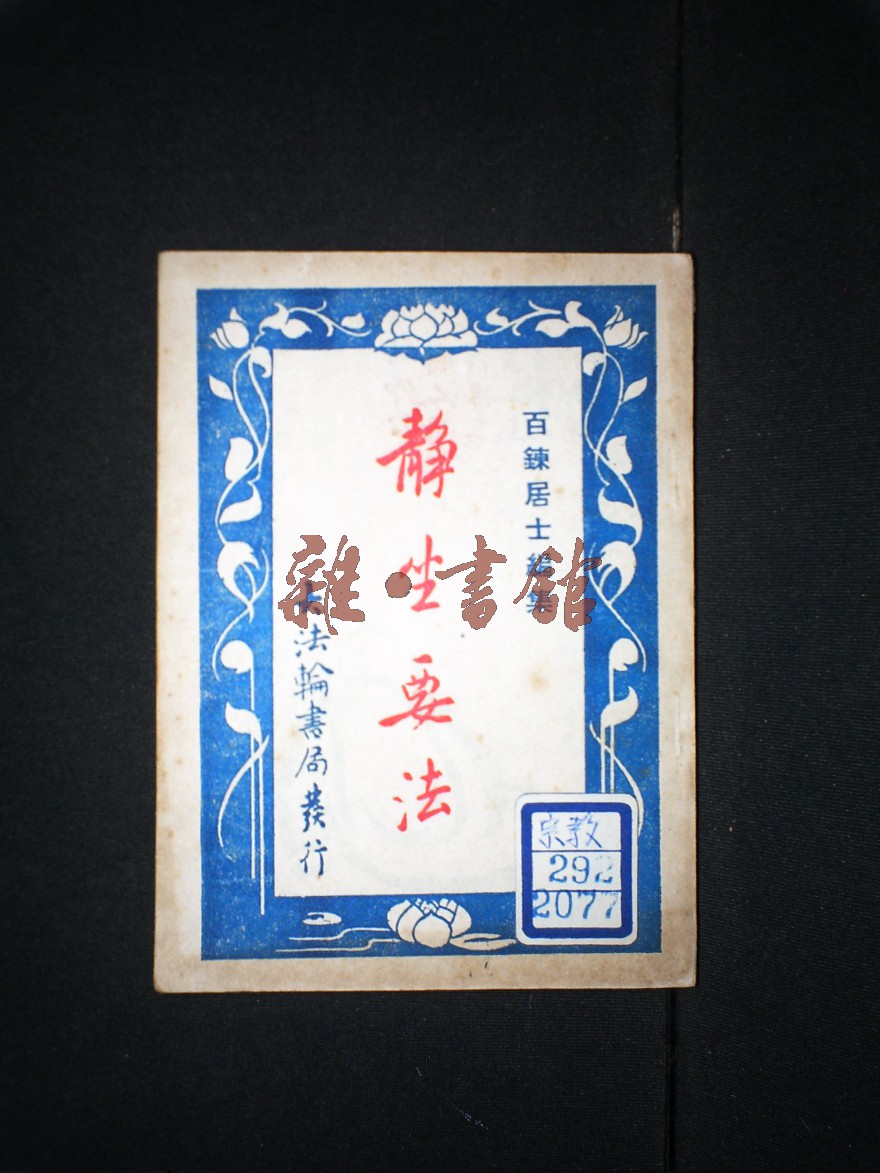 百鍊居士編集
靜坐要法
大法輪書局發行
宗教
292
2077
雜·書館